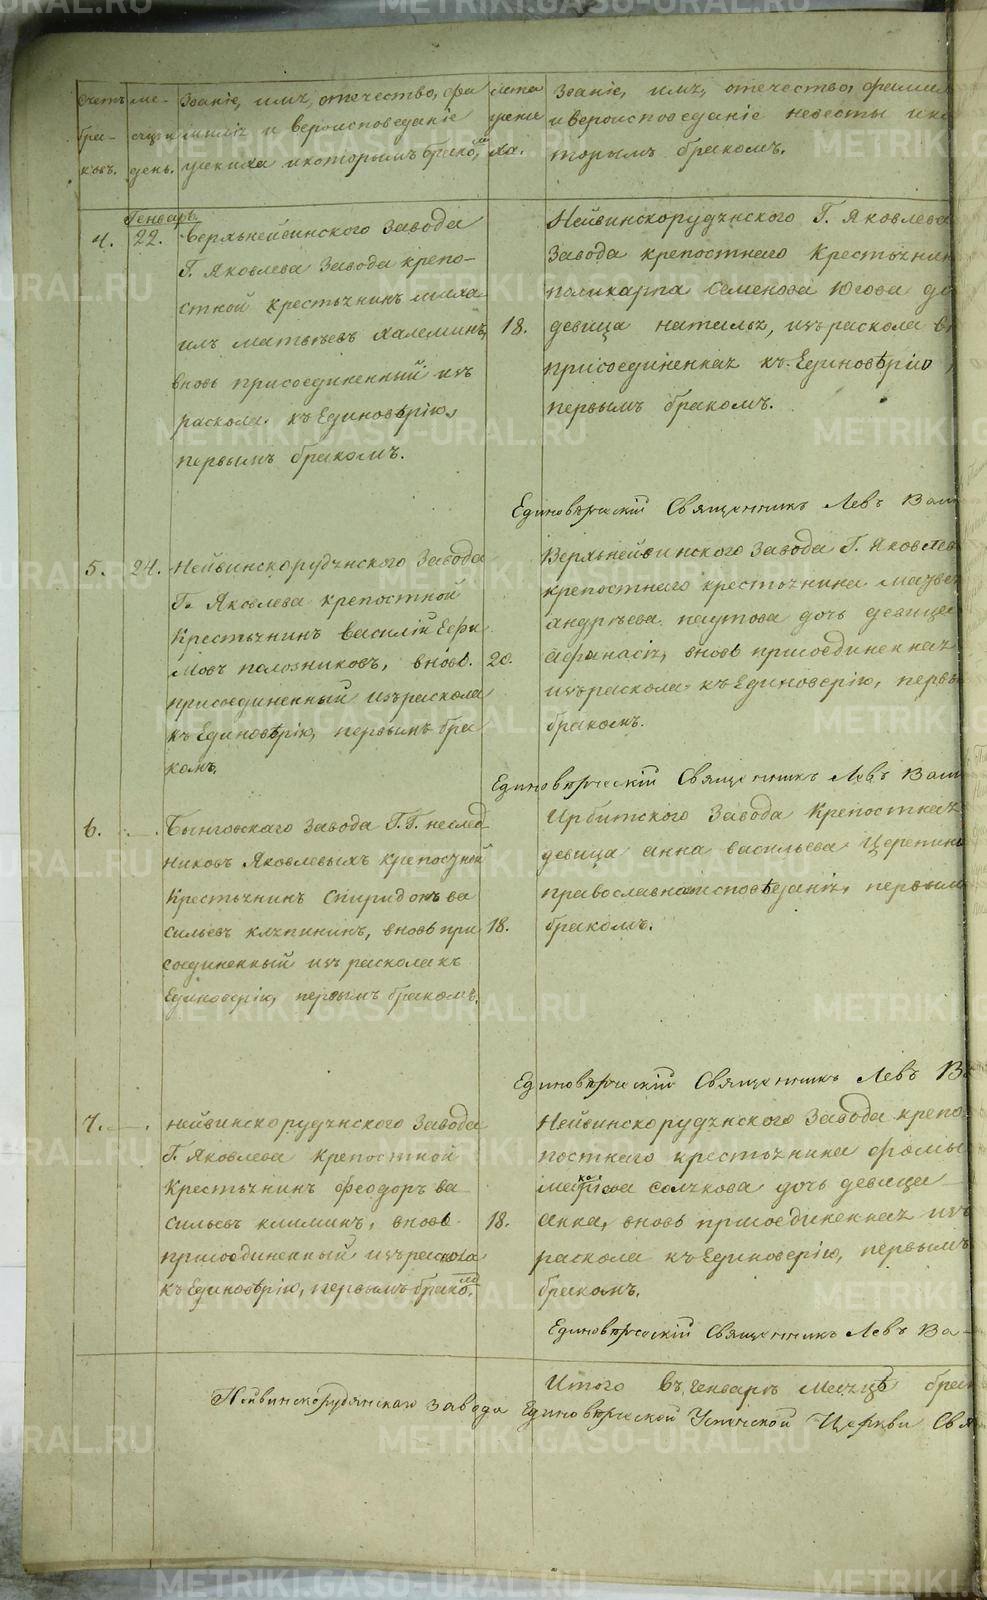 Счетъ бра- ковъ.
ме- сяцъ и день.
Званіе, имя, отечество, фа
миліz и вероисповеданіе
жениха и которымъ бракомъ
лета
жени
ха.
Званіе, имz, отечество, фами
и вероисповеданіе невесты и ко
торымъ бракомъ.
Генварь.
4. 22. Верхьнейвинского завода
Г. Яковлева завода крепо-
стной крестьzнинъ миха
илъ матвѣевъ халеминъ,
вновь присоединенный изъ
раскола къ Единовѣрію,
первымъ бракомъ.
18.
Нейвинскорудzнского Г. Яковлева
завода крепостнаго Крестьzнин
поликарпа Семенова Югова до
девица натальz, изъ раскола в
присоединеннаz къ Единовѣрію
первымъ бракомъ.
Единовѣрческій Священникъ Левъ Ва
5. 24. Нейвинскорудzнского завода
Г. Яковлева крепостной
Крестьzнинъ василій Ефи
мовъ полозниковъ, вновь
присоединенный изъ раскола
къ Единовѣрію, первымъ бра
комъ.
20.
Верхьнейвинского завода Г. Яковлев
крепостнаго крестьzнина матвея
андрѣева паутова дочь девица
афанасіz, вновь присоединеннаz
изъ раскола къ Единоверію, первы
бракомъ.
Единовѣрческій Священникъ Левъ Ва
6. — Бынговскаго завода Г.Г. наслед
никовъ Яковлевыхъ крепостной
Крестьzнинъ Спиридонъ ва
сильевъ клzпининъ, вновь при
соединенный изъ раскола къ
Единоверію, первымъ бракомъ.
18.
Ирбитского завода Крепостнаz
девица анна васильева Черепан
православнаго исповѣданіz, первым
бракомъ.
Единовѣрческій Священникъ Левъ Ва
7. — нейвинскорудzнского завода
Г. Яковлева крепостной
Крестьzнинъ феодоръ ва
сильевъ климинъ, вновь
присоединенный изъ раскола
къ Единовѣрію, первымъ бракомъ.
18.
Нейвинскорудzнского завода крепо
постнаго крестьzнина фомы
дочь девица
анна, вновь присоединеннаz изъ
раскола къ Единоверію, первымъ
бракомъ.
Единовѣрческій Священникъ Левъ Ва-
Итого въ Генварѣ Месzцѣ брак
Нейвинскорудянскаго завода Единовѣрческой Успенской Церкви Свя
METRIKI.GASO-URAL.RU